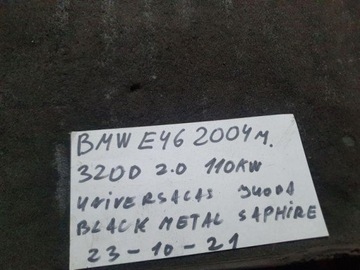 BMW E46 2004 м.
320D 2.0 110KW
UNIVERSALAS JUODA
BLACK METAL SAPHIRE
23-10-21